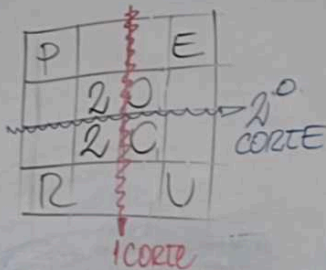 P E
2 0
2 C
R U
2º
CORTE
1 CORTE